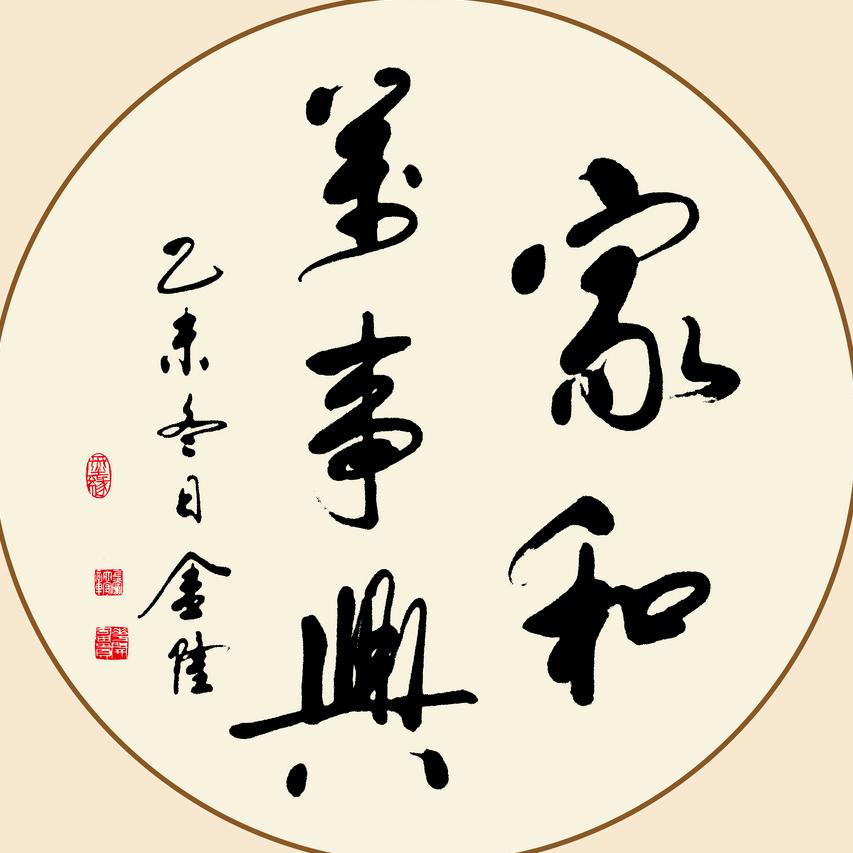 家和
萬事興
乙未冬日金陸